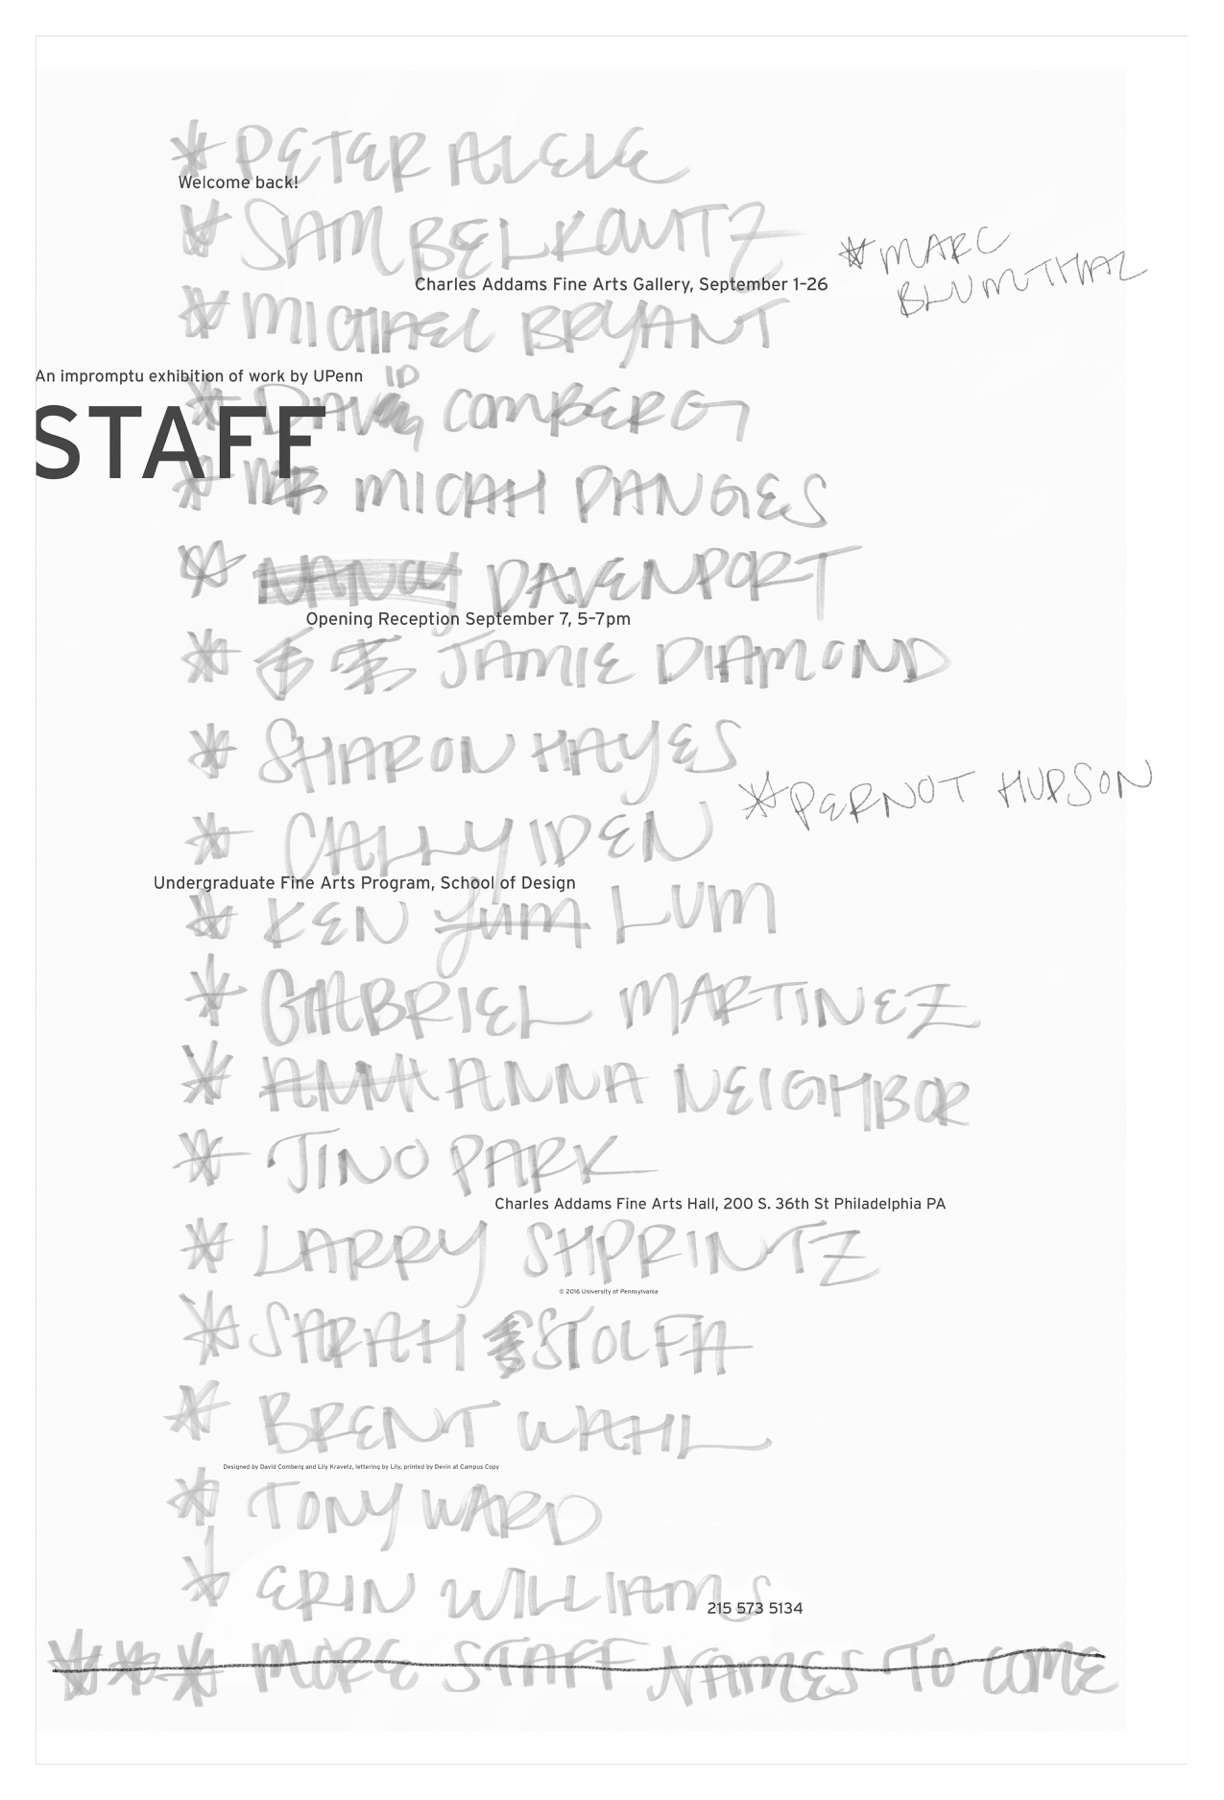 * PETER ALEVE
Welcome back!
* SAM BELKOWITZ
* MARC
BLUMTHAL
Charles Addams Fine Arts Gallery, September 1–26
* MICHAEL BRYANT
An impromptu exhibition of work by UPenn
* DAVID COMBERG
STAFF
* MICAH DANGES
* NANCY DAVENPORT
Opening Reception September 7, 5–7pm
* JAMIE DIAMOND
* SHARON HAYES
* PERNOT HUDSON
* CALLY IDEN
Undergraduate Fine Arts Program, School of Design
* KEN LUM LUM
* GABRIEL MARTINEZ
* ANNA NEIGHBOR
* JINO PARK
Charles Addams Fine Arts Hall, 200 S. 36th St Philadelphia PA
* LARRY SHPRINTZ
© 2016 University of Pennsylvania
* SARAH STOLFA
* BRENT WAHL
Designed by David Comberg and Lily Kravetz, lettering by Lily, printed by Devin at Campus Copy
* TONY WARD
* ERIN WILLIAMS
215 573 5134
* * * MORE STAFF NAMES TO COME